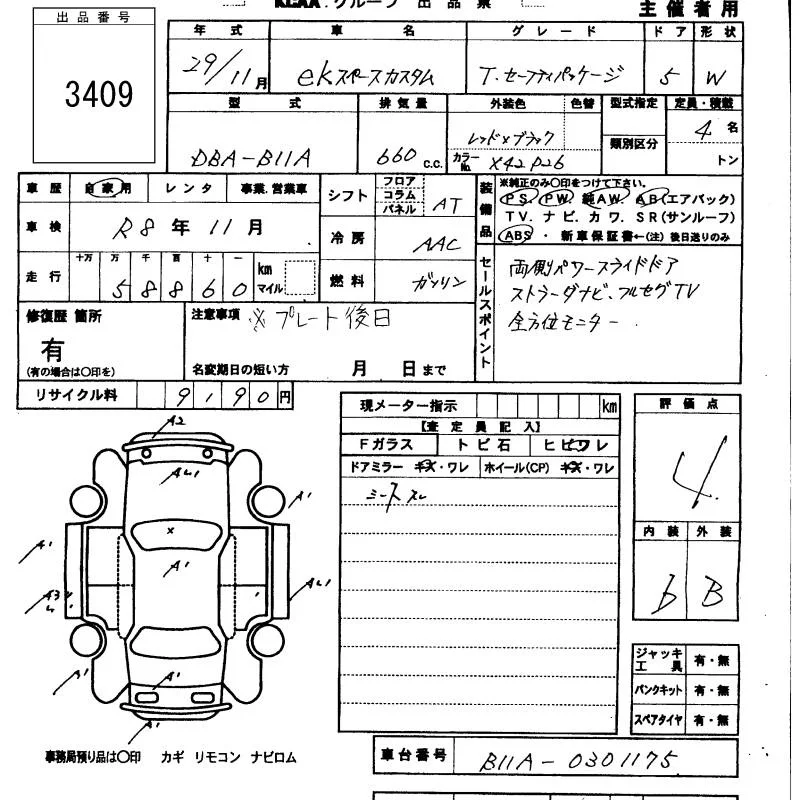 KCAA.グループ 出品票
主催者用
出品番号
3409
年式 車名 グレード ドア 形状
29/11月 ekスペースカスタム T.セーフティパッケージ 5 W
型式 排気量 外装色 色替 型式指定 定員・積載
DBA-B11A 660 c.c. レッド×ブラック 4名
カラーNo. X42P26 類別区分 トン
車歴 自家用 レンタ 事業.営業車
車検 R8年11月
走行 十万 万 千 百 十 一 km マイル
58860
シフト フロア コラム パネル AT
冷房 AAC
燃料 ガソリン
装備品
※純正のみ○印をつけて下さい。
PS. PW. 純AW. AB(エアバック)
TV. ナビ. カワ. SR(サンルーフ)
ABS ・ 新車保証書←(注) 後日送りのみ
セールスポイント
両側パワースライドドア
ストラーダナビ、フルセグTV
全方位モニター
修復歴 箇所
有
(有の場合は○印を)
注意事項 ※プレート後日
名変期日の短い方 月 日まで
リサイクル料 9190円
現メーター指示 km
【査定員記入】
Fガラス トビ石 ヒビワレ
ドアミラー キズ・ワレ ホイール(CP) キズ・ワレ
シートスレ
評価点
4
内装 外装
b B
A2
AU1
A1
A1
A1
A1
AU1
A1
A1
ジャッキ工具 有・無
パンクキット 有・無
スペアタイヤ 有・無
事務局預り品は○印 カギ リモコン ナビロム
車台番号 B11A-0301175